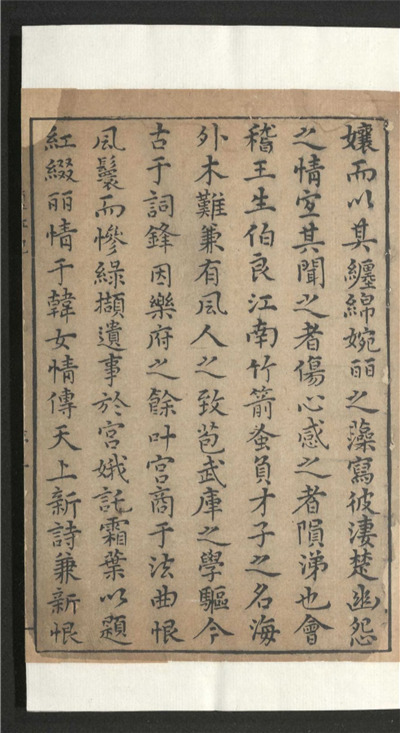 孃而以其纏綿婉丽之藻寫彼淒楚幽怨
之情宜其聞之者傷心感之者隕涕也會
稽王生伯良江南竹箭蚤負才子之名海
外木難兼有風人之致苞武庫之學驅今
古于詞鋒因樂府之餘叶宮商于法曲恨
風鬟而慘綠擷遺事於宮娥託霜葉以題
紅綴丽情于韓女情傳天上新詩兼新恨